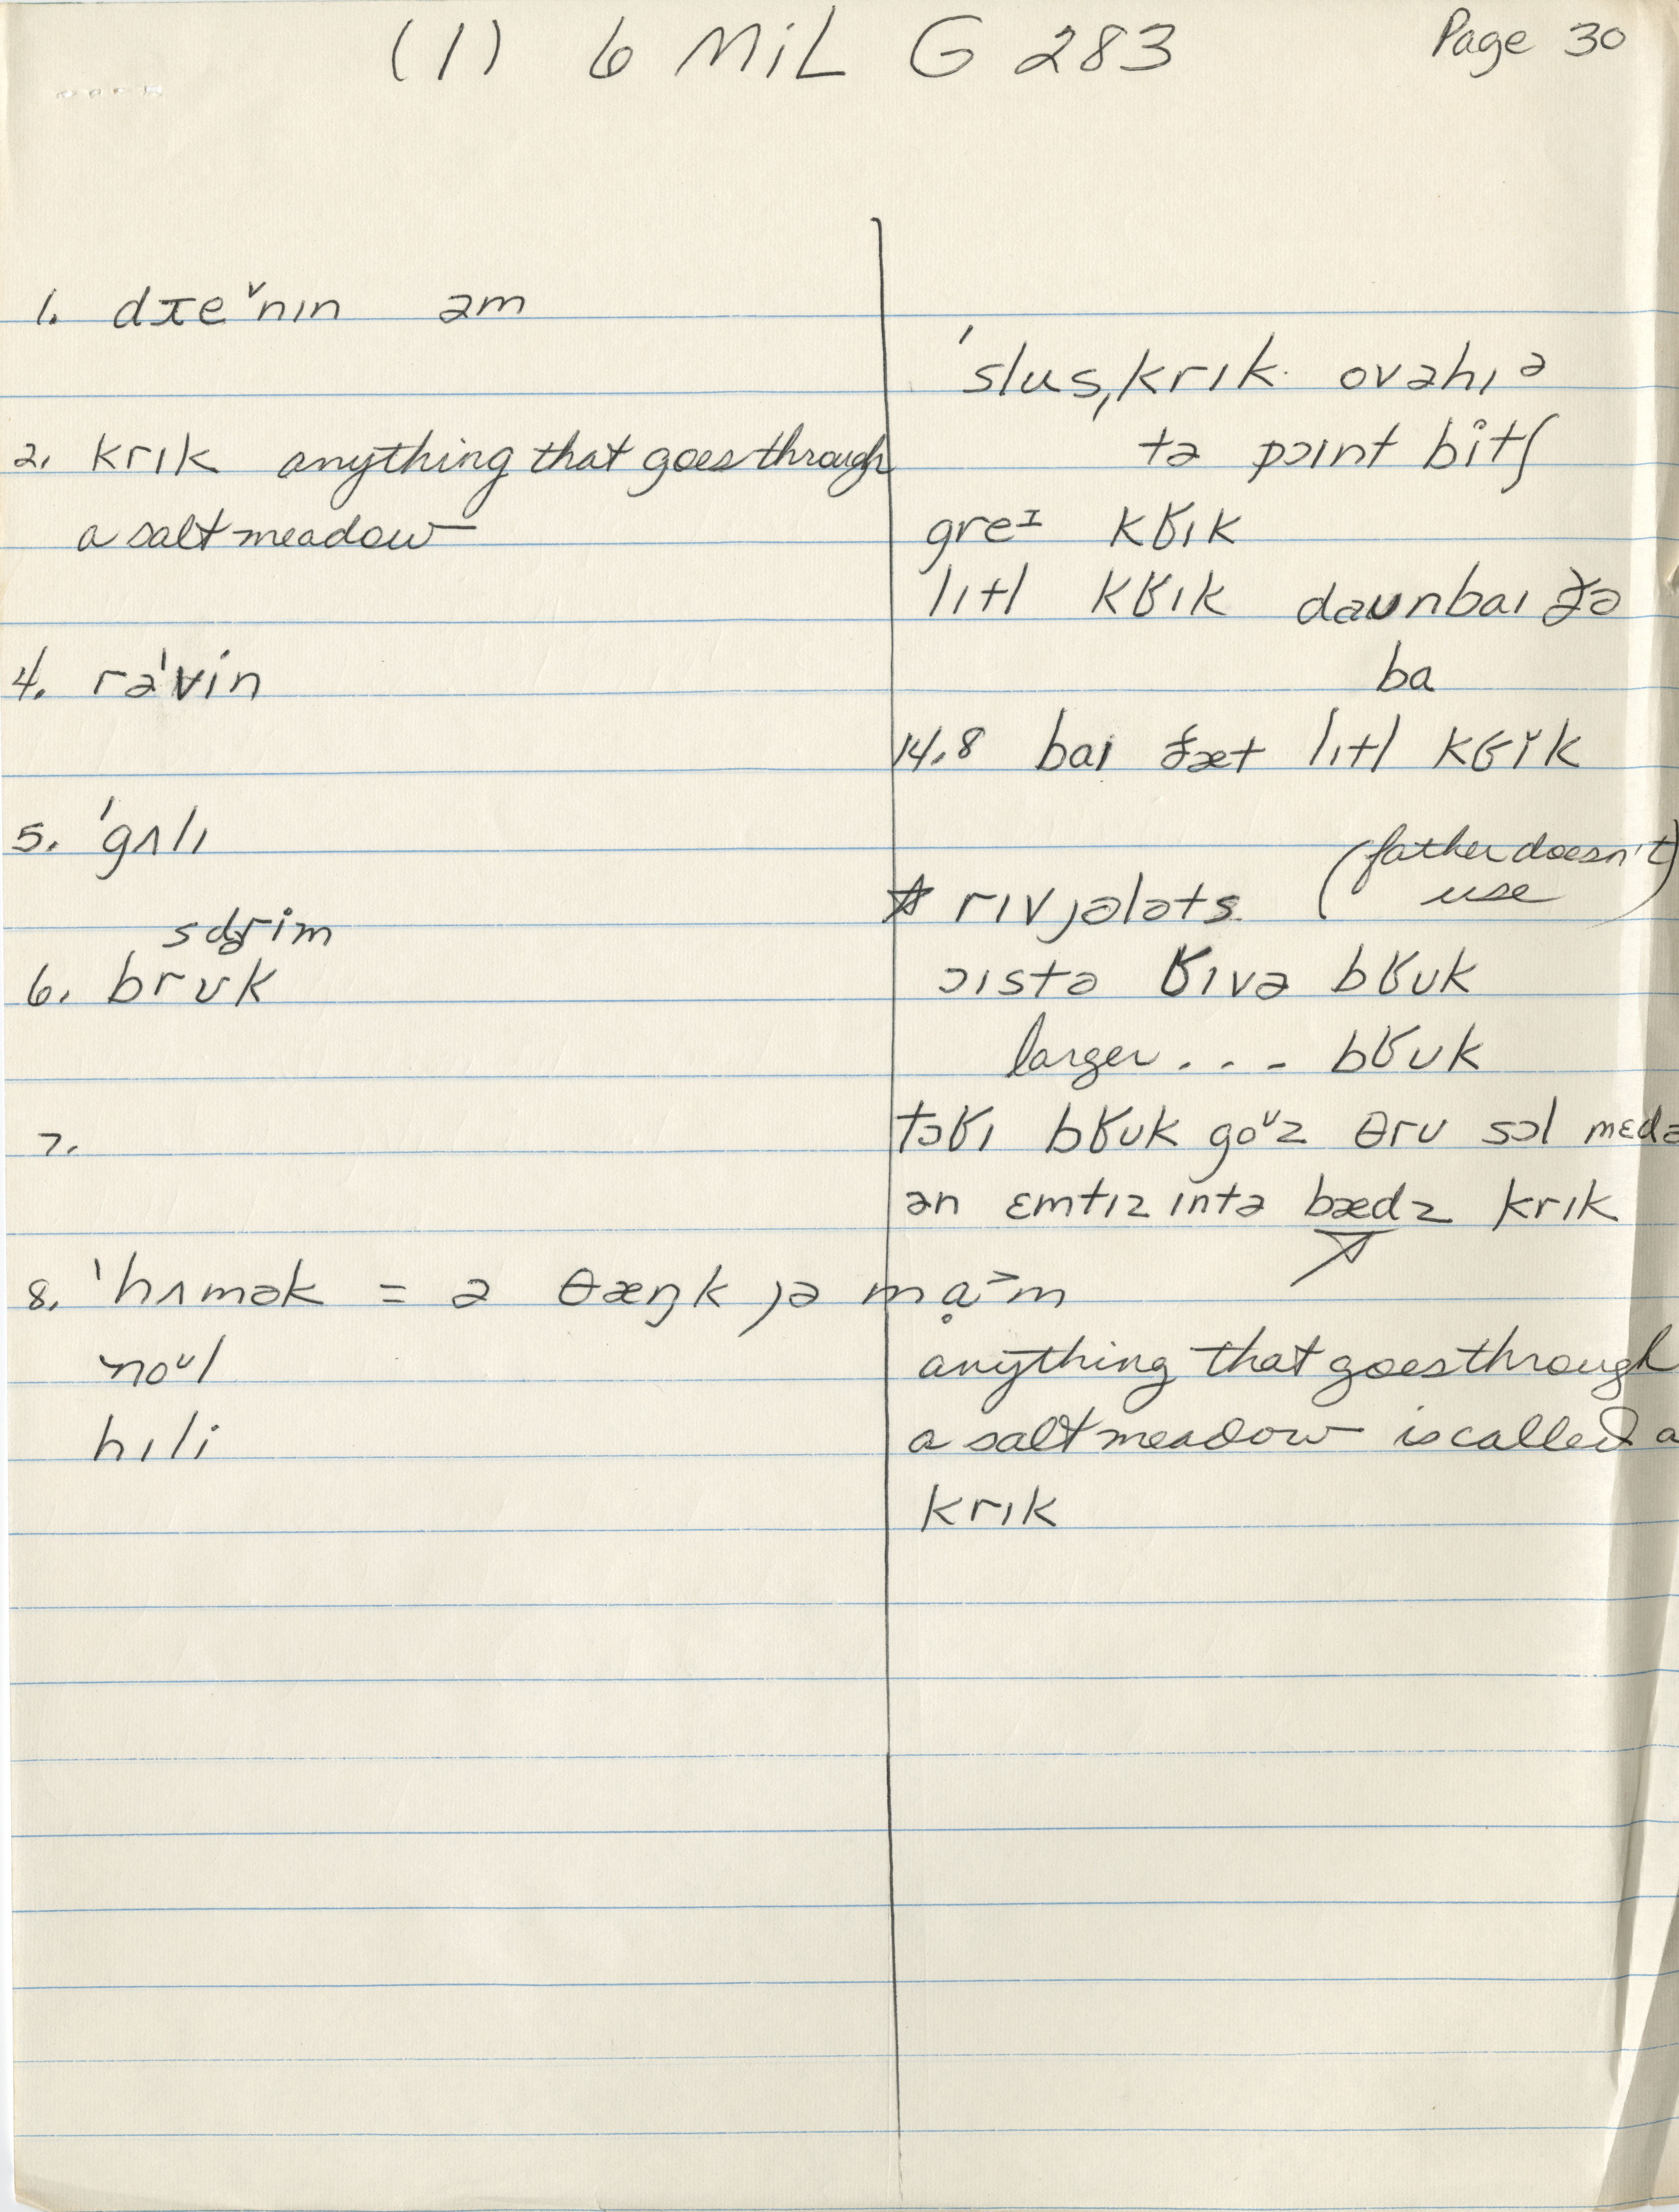 (1) 6 MiL G 283
Page 30
1. dɪe˅nɪn əm
2. krɪk anything that goes through
a salt meadow
4. rə'vin
5. 'gʌlɪ
sdrim
6. brʊk
7.
8. 'hʌmək = ə θæŋk jə mạ˃m
noᶷl
hɪli
'slus,krɪk ovəhɪᵊ
tə pɔɪnt bitʃ
greᴵ kʁɪk
lɪtl kʁɪk daʊnbaɪ ðə
ba
14.8 baɪ ðæt lɪtl kʁɪk
☆ rɪvjələts (father doesn't
use)
ɔɪstə ʁɪvə bʁʊk
larger . . . bʁʊk
tɔʁɪ bʁʊk goᶷz θrʊ sɔl mɛdə
ən ɛmtɪz intə bædz krɪk
anything that goes through
a salt meadow is called a
krɪk